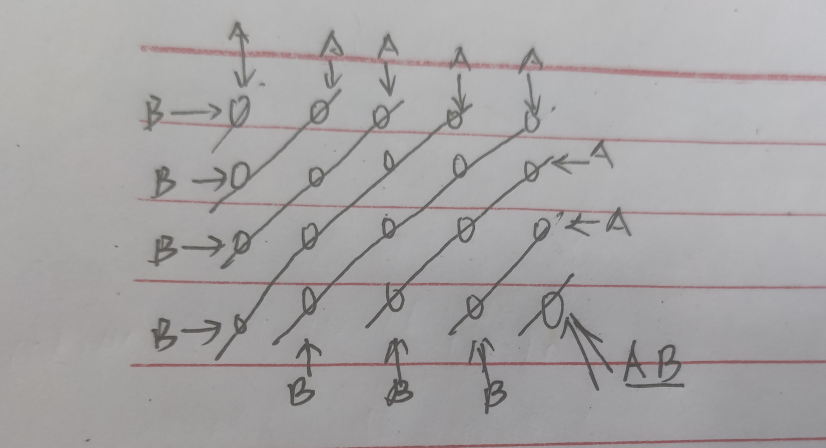 A A A A A
B → O O O O O
B → O O O O O ← A
B → O O O O O ← A
B → O O O O O
B B B AB